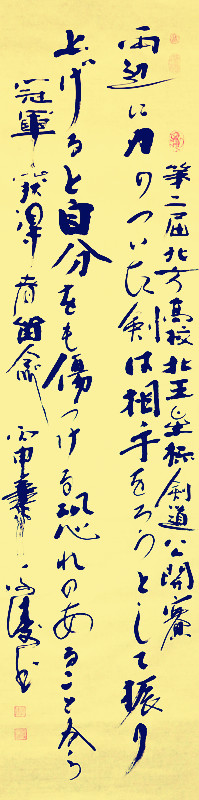 第二届北方高校北王杯剣道公開賽
両辺に刃のついた剣は相手をろうとして振り
上げると自分をも傷つける恐れのあること
冠軍 丙申 書